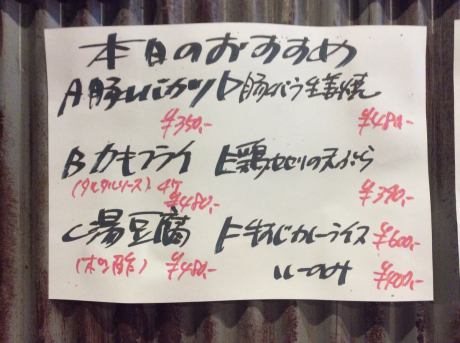 本日のおすすめ
A 豚ヒレカツ
¥350,-
D 豚バラ生姜焼
¥480,-
B カキフライ
(タルタルソース) 4ケ
¥480,-
E 鶏せせりの天ぷら
¥390,-
C 湯豆腐
(ポン酢)
¥480,-
F 牛すじカレーライス ¥600,-
ルーのみ ¥400,-